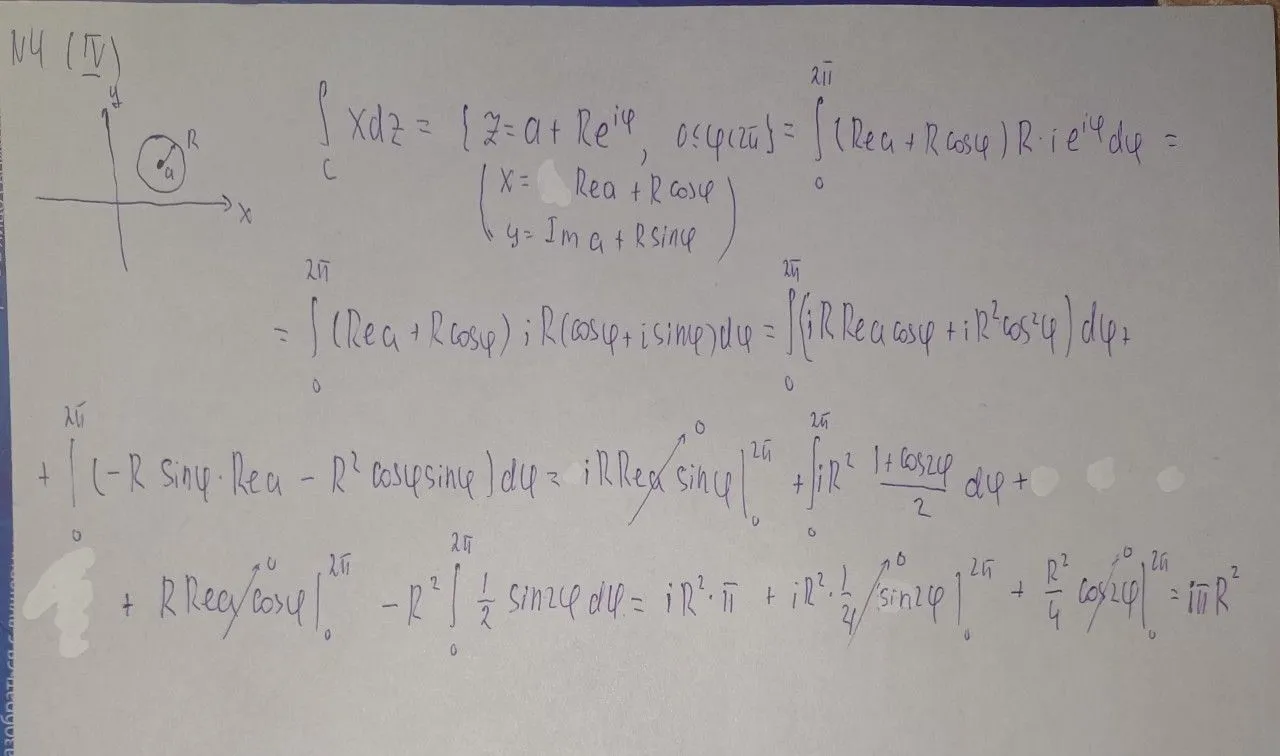 N4 (IV)
y
R
a
x
∫_C xdz = {z = a + Re^{iφ}, 0≤φ<2π} = ∫_0^{2π} (Rea + Rcosφ) R·i e^{iφ}dφ =
(x = Rea + Rcosφ
y = Im a + Rsinφ)
= ∫_0^{2π} (Rea + Rcosφ) iR(cosφ + isinφ)dφ = ∫_0^{2π} (iR Rea cosφ + iR²cos²φ) dφ +
+ ∫_0^{2π} (-R sinφ·Rea - R² cosφsinφ)dφ = iR Rea sinφ→0 |_0^{2π} + ∫_0^{2π} iR² (1+cos2φ)/2 dφ +
+ R Rea cosφ→0 |_0^{2π} - R² ∫_0^{2π} 1/2 sin2φ dφ = iR²·π + iR²·1/4 sin2φ→0 |_0^{2π} + R²/4 cos2φ→0 |_0^{2π} = iπR²
азобраться с